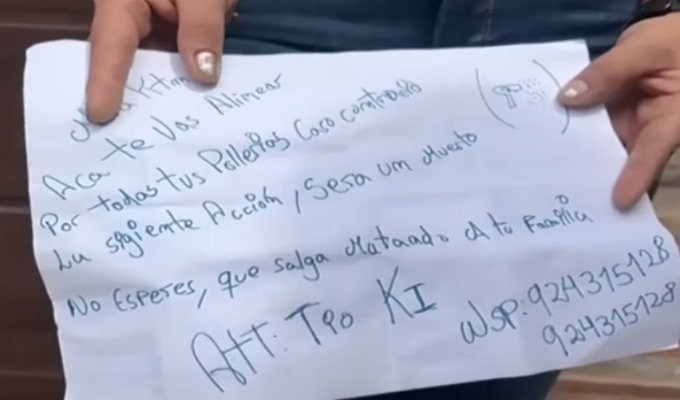 Aca te Vas Alinear
Por todas tus Pollerias Caso contrario
La sigiente Acción, Sera um Muerto
No Esperes, que salga Mataado A tu Familia
Att: Tio KI
WSP: 924315128
924315128